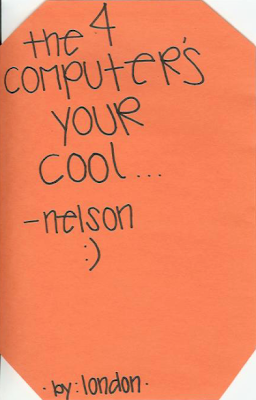 the 4
computer's
YOUR
COOL...
-nelson
:)
·by: london·